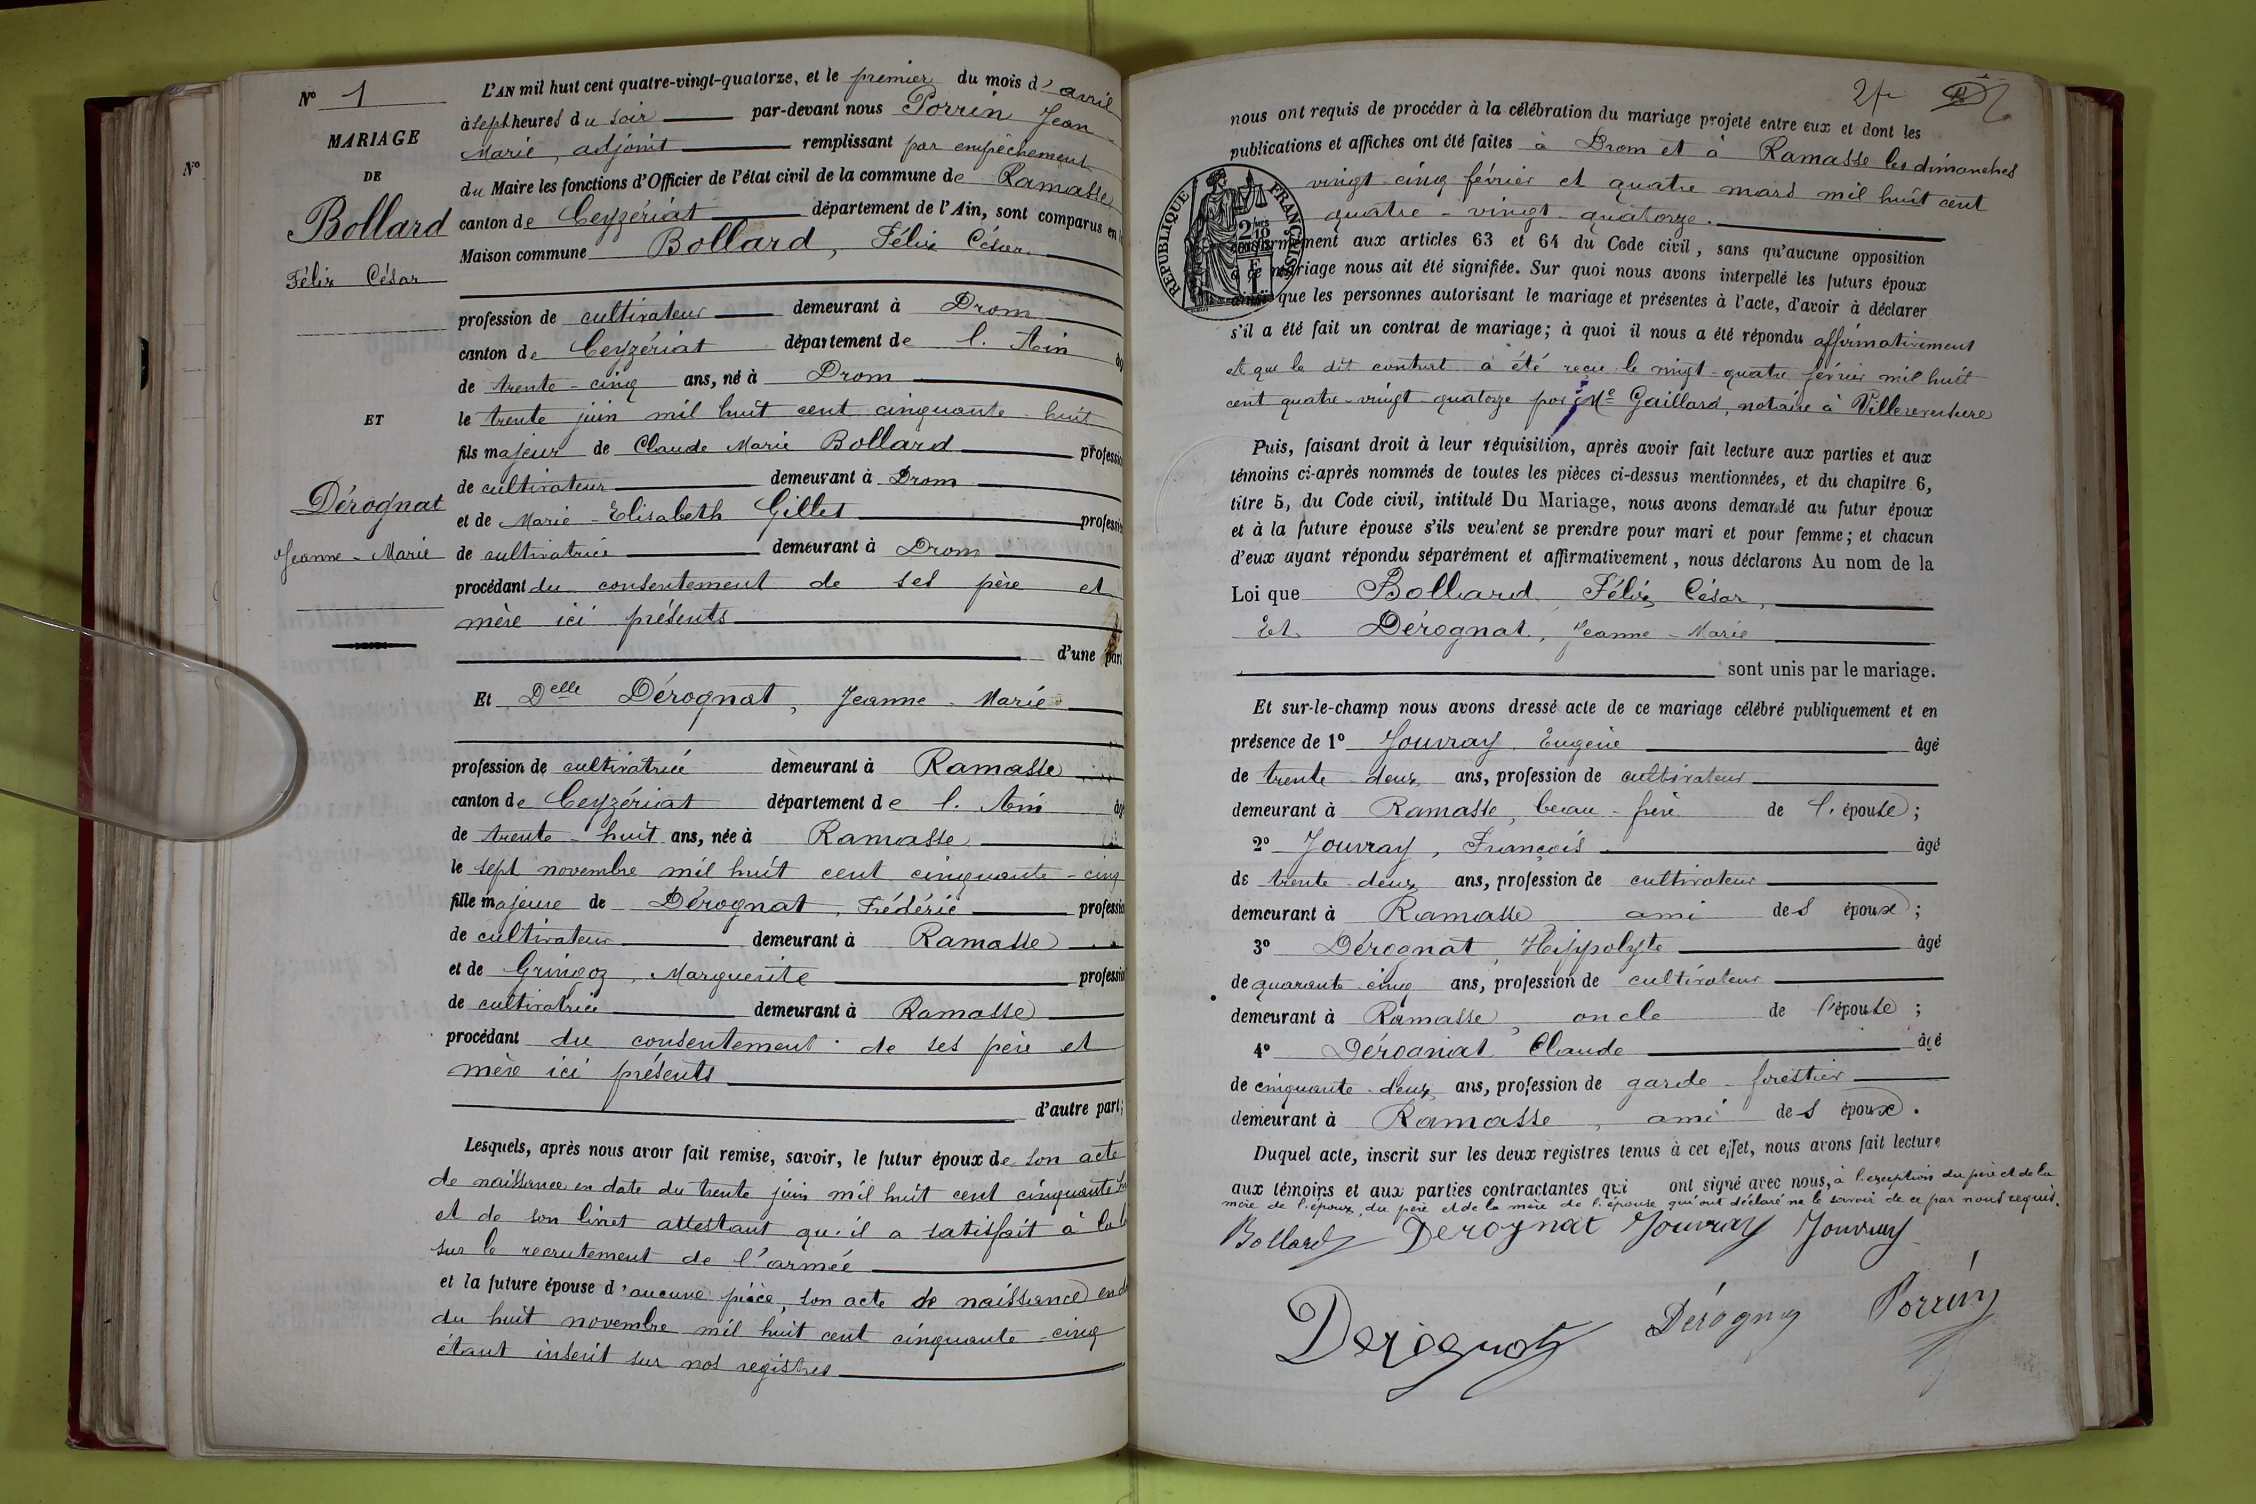 N° 1
MARIAGE
DE
Bollard
Félix César
ET
Dérognat
Jeanne-Marie
N°
L'AN mil huit cent quatre-vingt-quatorze, et le premier du mois d'avril
à sept heures du soir par-devant nous Porrin Jean
Marie, adjoint remplissant par empêchement
du Maire les fonctions d'Officier de l'état civil de la commune de Ramasse
canton de Ceyzériat département de l'Ain, sont comparus en
Maison commune Bollard, Félix César
profession de cultivateur demeurant à Drom
canton de Ceyzériat département de l'Ain
de trente-cinq ans, né à Drom
le trente juin mil huit cent cinquante-huit
fils majeur de Claude Marie Bollard profession
de cultivateur demeurant à Drom
et de Marie-Elisabeth Gillet profession
de cultivatrice demeurant à Drom
procédant du consentement de ses père et
mère ici présents
d'une part
Et Delle Dérognat, Jeanne-Marie
profession de cultivatrice demeurant à Ramasse
canton de Ceyzériat département de l'Ain
de trente-huit ans, née à Ramasse
le sept novembre mil huit cent cinquante-cinq
fille majeure de Dérognat, Frédéric profession
de cultivateur demeurant à Ramasse
et de Gringoz, Marguerite profession
de cultivatrice demeurant à Ramasse
procédant du consentement de ses père et
mère ici présents
d'autre part;
Lesquels, après nous avoir fait remise, savoir, le futur époux de son acte
de naissance en date du trente juin mil huit cent cinquante
et de son livret attestant qu'il a satisfait à la
sur le recrutement de l'armée
et la future épouse d'aucune pièce, son acte de naissance en
du huit novembre mil huit cent cinquante-cinq
étant inscrit sur nos registres
2f
nous ont requis de procéder à la célébration du mariage projeté entre eux et dont les
publications et affiches ont été faites à Drom et à Ramasse les dimanches
vingt-cinq février et quatre mars mil huit cent
quatre-vingt-quatorze.
RÉPUBLIQUE FRANÇAISE
conformément aux articles 63 et 64 du Code civil, sans qu'aucune opposition
à ce mariage nous ait été signifiée. Sur quoi nous avons interpellé les futurs époux
ainsi que les personnes autorisant le mariage et présentes à l'acte, d'avoir à déclarer
s'il a été fait un contrat de mariage; à quoi il nous a été répondu affirmativement
et que le dit contrat a été reçu le vingt-quatre février mil huit
cent quatre-vingt-quatorze par Me Gaillard, notaire à Villereversure
Puis, faisant droit à leur réquisition, après avoir fait lecture aux parties et aux
témoins ci-après nommés de toutes les pièces ci-dessus mentionnées, et du chapitre 6,
titre 5, du Code civil, intitulé Du Mariage, nous avons demandé au futur époux
et à la future épouse s'ils veulent se prendre pour mari et pour femme; et chacun
d'eux ayant répondu séparément et affirmativement, nous déclarons Au nom de la
Loi que Bollard Félix César,
Et Dérognat, Jeanne-Marie
sont unis par le mariage.
Et sur-le-champ nous avons dressé acte de ce mariage célébré publiquement et en
présence de 1° Jouvray, Eugène âgé
de trente-deux ans, profession de cultivateur
demeurant à Ramasse, beau-frère de l'épouse;
2° Jouvray, François âgé
de trente-deux ans, profession de cultivateur
demeurant à Ramasse ami des époux;
3° Dérognat, Hippolyte âgé
de quarante-cinq ans, profession de cultivateur
demeurant à Ramasse, oncle de l'épouse;
4° Dérognat Claude âgé
de cinquante-deux ans, profession de garde-forestier
demeurant à Ramasse, ami des époux.
Duquel acte, inscrit sur les deux registres tenus à cet effet, nous avons fait lecture
aux témoins et aux parties contractantes qui ont signé avec nous, à l'exception du père et de la
mère de l'époux, du père et de la mère de l'épouse qui ont déclaré ne le savoir de ce par nous requis.
Bollard Derognat Jouvray Jouvray
Derognat Dérogna Porrin